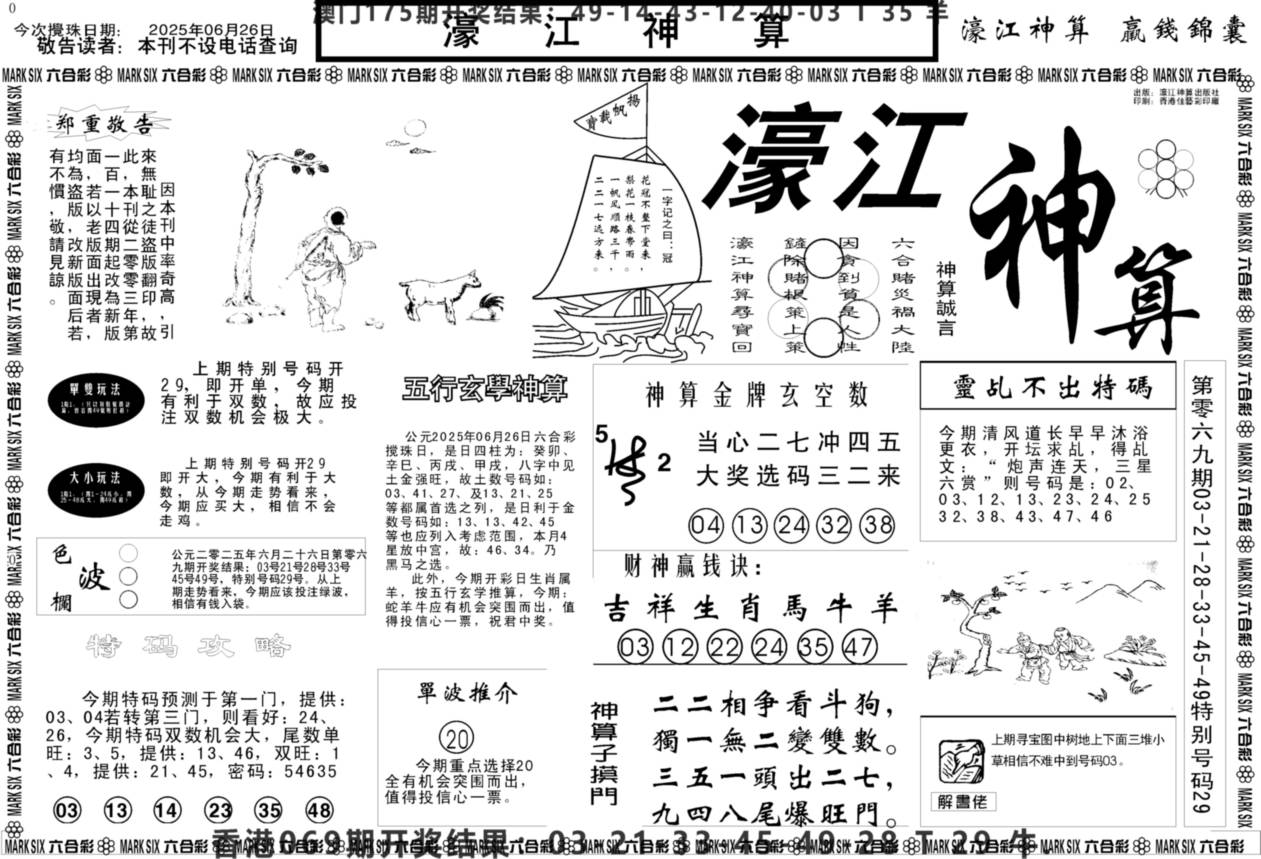 0
澳门175期开奖结果：49-14-43-12-40-03 T 35 羊
今次攪珠日期： 2025年06月26日
敬告读者：本刊不设电话查询
濠 江 神 算
濠江神算 贏錢錦囊
MARK SIX 六合彩 MARK SIX 六合彩 MARK SIX 六合彩 MARK SIX 六合彩 MARK SIX 六合彩 MARK SIX 六合彩 MARK SIX 六合彩 MARK SIX 六合彩 MARK SIX 六合彩 MARK SIX 六合彩 MARK SIX 六合彩
出版：濠江神算出版社
印刷：香港佳藝彩印廠
郑重敬告
因本刊中率奇高，引
來無恥之徒盜版翻印故
此，本刊從二零零三年第
一百一十四期起改為新版，
面，若以老版面出現者
均為盜版，改新版面后若
有不慣，敬請見諒。
揚帆載譽
一字记之曰：冠
花冠不整下堂来，
梨花一枝春带雨。
一帆风顺路三千，
二二一七远方来。
濠江
神算
六合賭災禍大陸
因貪到貧是人性
鏟除賭根萊上策
濠江神算尋寶回
神算誠言
單雙玩法
上期特别号码开
29，即开单，今期
有利于双数，故应投
注双数机会极大。
大小玩法
上期特别号码开29
即开大，今期有利于大
数，从今期走势看来，
今期应买大，相信不会
走鸡。
色波欄
公元二零二五年六月二十六日第零六
九期开奖结果：03号21号28号33号
45号49号，特别号码29号。从上
期走势看来，今期应该投注绿波，
相信有钱入袋。
特码攻略
今期特码预测于第一门，提供：
03、04若转第三门，则看好：24、
26，今期特码双数机会大，尾数单
旺：3、5，提供：13、46，双旺：1
、4，提供：21、45，密码：54635
03 13 14 23 35 48
五行玄學神算
公元2025年06月26日六合彩
搅珠日，是日四柱为：癸卯、
辛巳、丙戌、甲戌，八字中见
土金强旺，故土数号码如：
03、41、27、及13、21、25
等都属首选之列，是日利于金
数号码如：13、13、42、45
等也应列入考虑范围，本月4
星放中宫，故：46、34。乃
黑马之选。
此外，今期开彩日生肖属
羊，按五行玄学推算，今期：
蛇羊牛应有机会突围而出，值
得投信心一票，祝君中奖。
單波推介
20
今期重点选择20
全有机会突围而出，
值得投信心一票。
神算金牌玄空数
5
2
当心二七冲四五
大奖选码三二来
04 13 24 32 38
财神赢钱诀：
吉祥生肖馬牛羊
03 12 22 24 35 47
神算子摸門
二二相争看斗狗，
獨一無二變雙數。
三五一頭出二七，
九四八尾爆旺門。
靈乩不出特碼
今期清风道长早早沐浴
更衣，开坛求乩，得乩
文：“炮声连天，三星
六赏”则号码是：02、
03、12、13、23、24、25
32、38、43、47、46
上期寻宝图中树地上下面三堆小
草相信不难中到号码03。
解畫佬
第零六九期03-21-28-33-45-49特别号码29
香港069期开奖结果：03-21-33-45-49-28 T 29 牛
MARK SIX 六合彩 MARK SIX 六合彩 MARK SIX 六合彩 MARK SIX 六合彩 MARK SIX 六合彩 MARK SIX 六合彩 MARK SIX 六合彩 MARK SIX 六合彩 MARK SIX 六合彩 MARK SIX 六合彩 MARK SIX 六合彩